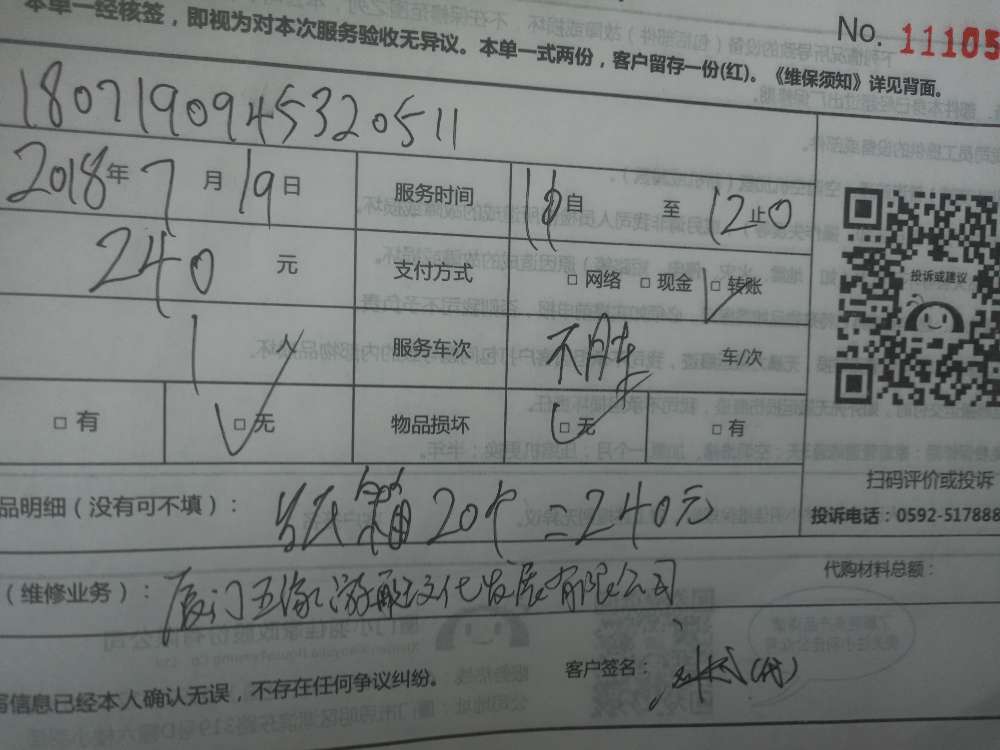 本单一经核签，即视为对本次服务验收无异议。本单一式两份，客户留存一份(红)。《维保须知》详见背面。
No. 11105
18071909453320511
2018年7月19日 服务时间 自 至 12止0
240 元 支付方式 □ 网络 □ 现金 □ 转账
1 人 服务车次 不用车 车/次
□ 有 □ 无 物品损坏 □ 无 □ 有
投诉或建议
扫码评价或投诉
投诉电话：0592-517888
品明细（没有可不填）： 纸箱20个=240元
代购材料总额：
（维修业务）： 厦门五缘游艇文化发展有限公司
信息已经本人确认无误，不存在任何争议纠纷。 客户签名： (代)